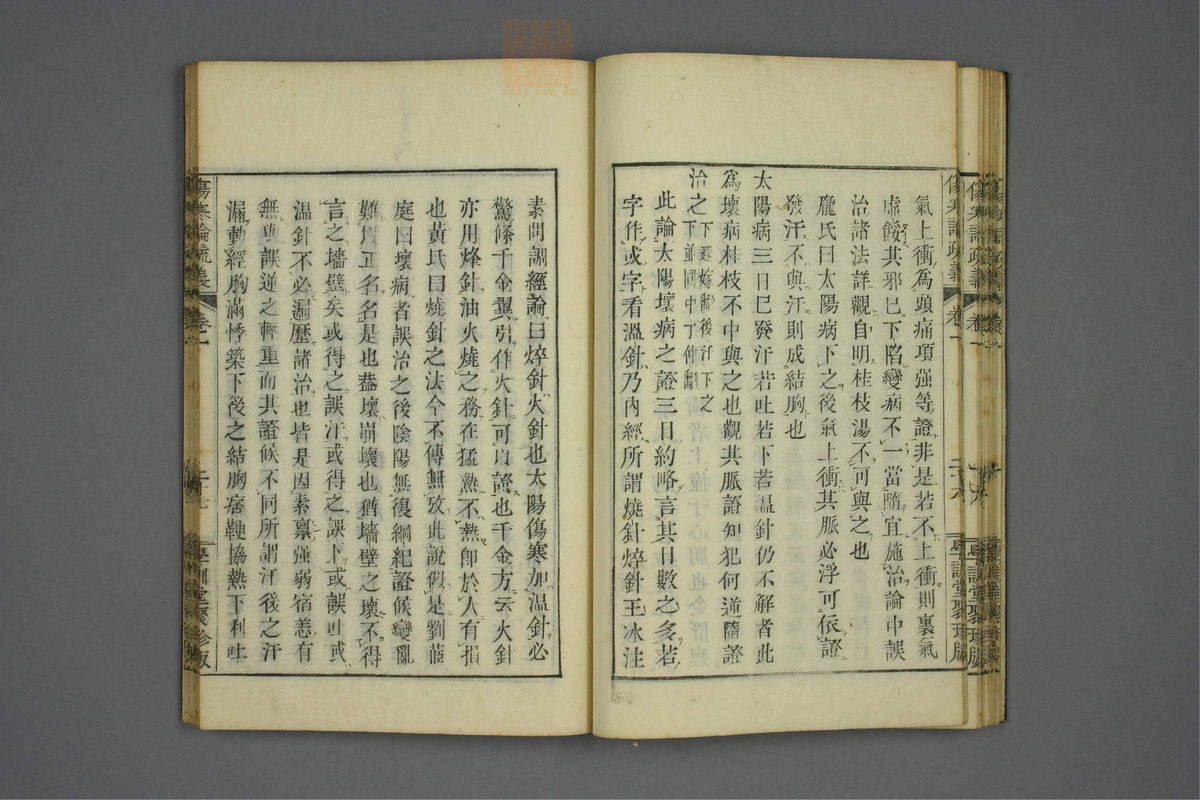 氣上衝爲頭痛項强等證非是若不上衝則裏氣
虛餒其邪已下陷變病不一當隨宜施治論中誤
治諸法詳觀自明桂枝湯不可與之也
龐氏曰太陽病下之後氣上衝其脈必浮可依證
發汗不與汗則成結胸也
太陽病三日已發汗若吐若下若温針仍不解者此
爲壞病桂枝不中與之也觀其脈證知犯何逆隨證
治之
此論太陽壞病之證三日約略言其日數之多若
字作或字看溫針乃內經所謂燒針焠針王冰注
傷寒論疏義 卷一
學訓堂聚珍版
素問調經論曰焠針火針也太陽傷寒加温針必
驚條千金翼引作火針可以證也千金方云火針
亦用烽針油火燒之務在猛熱不熱卽於人有損
也黃氏曰燒針之法今不傳無攷此說似是劉蒞
庭曰壞病者誤治之後陰陽無復綱紀證候變亂
難以正名名是也葢壞崩壞也猶墻壁之壞不得
言之墻壁矣或得之誤汗或得之誤下或誤吐或
温針不必遍歷諸治也皆是因素稟强弱宿恙有
無與誤逆之輕重而其證候不同所謂汗後之汗
漏動經胸滿悸築下後之結胸痞鞕協熱下利吐
傷寒論疏義 卷一
學訓堂聚珍版